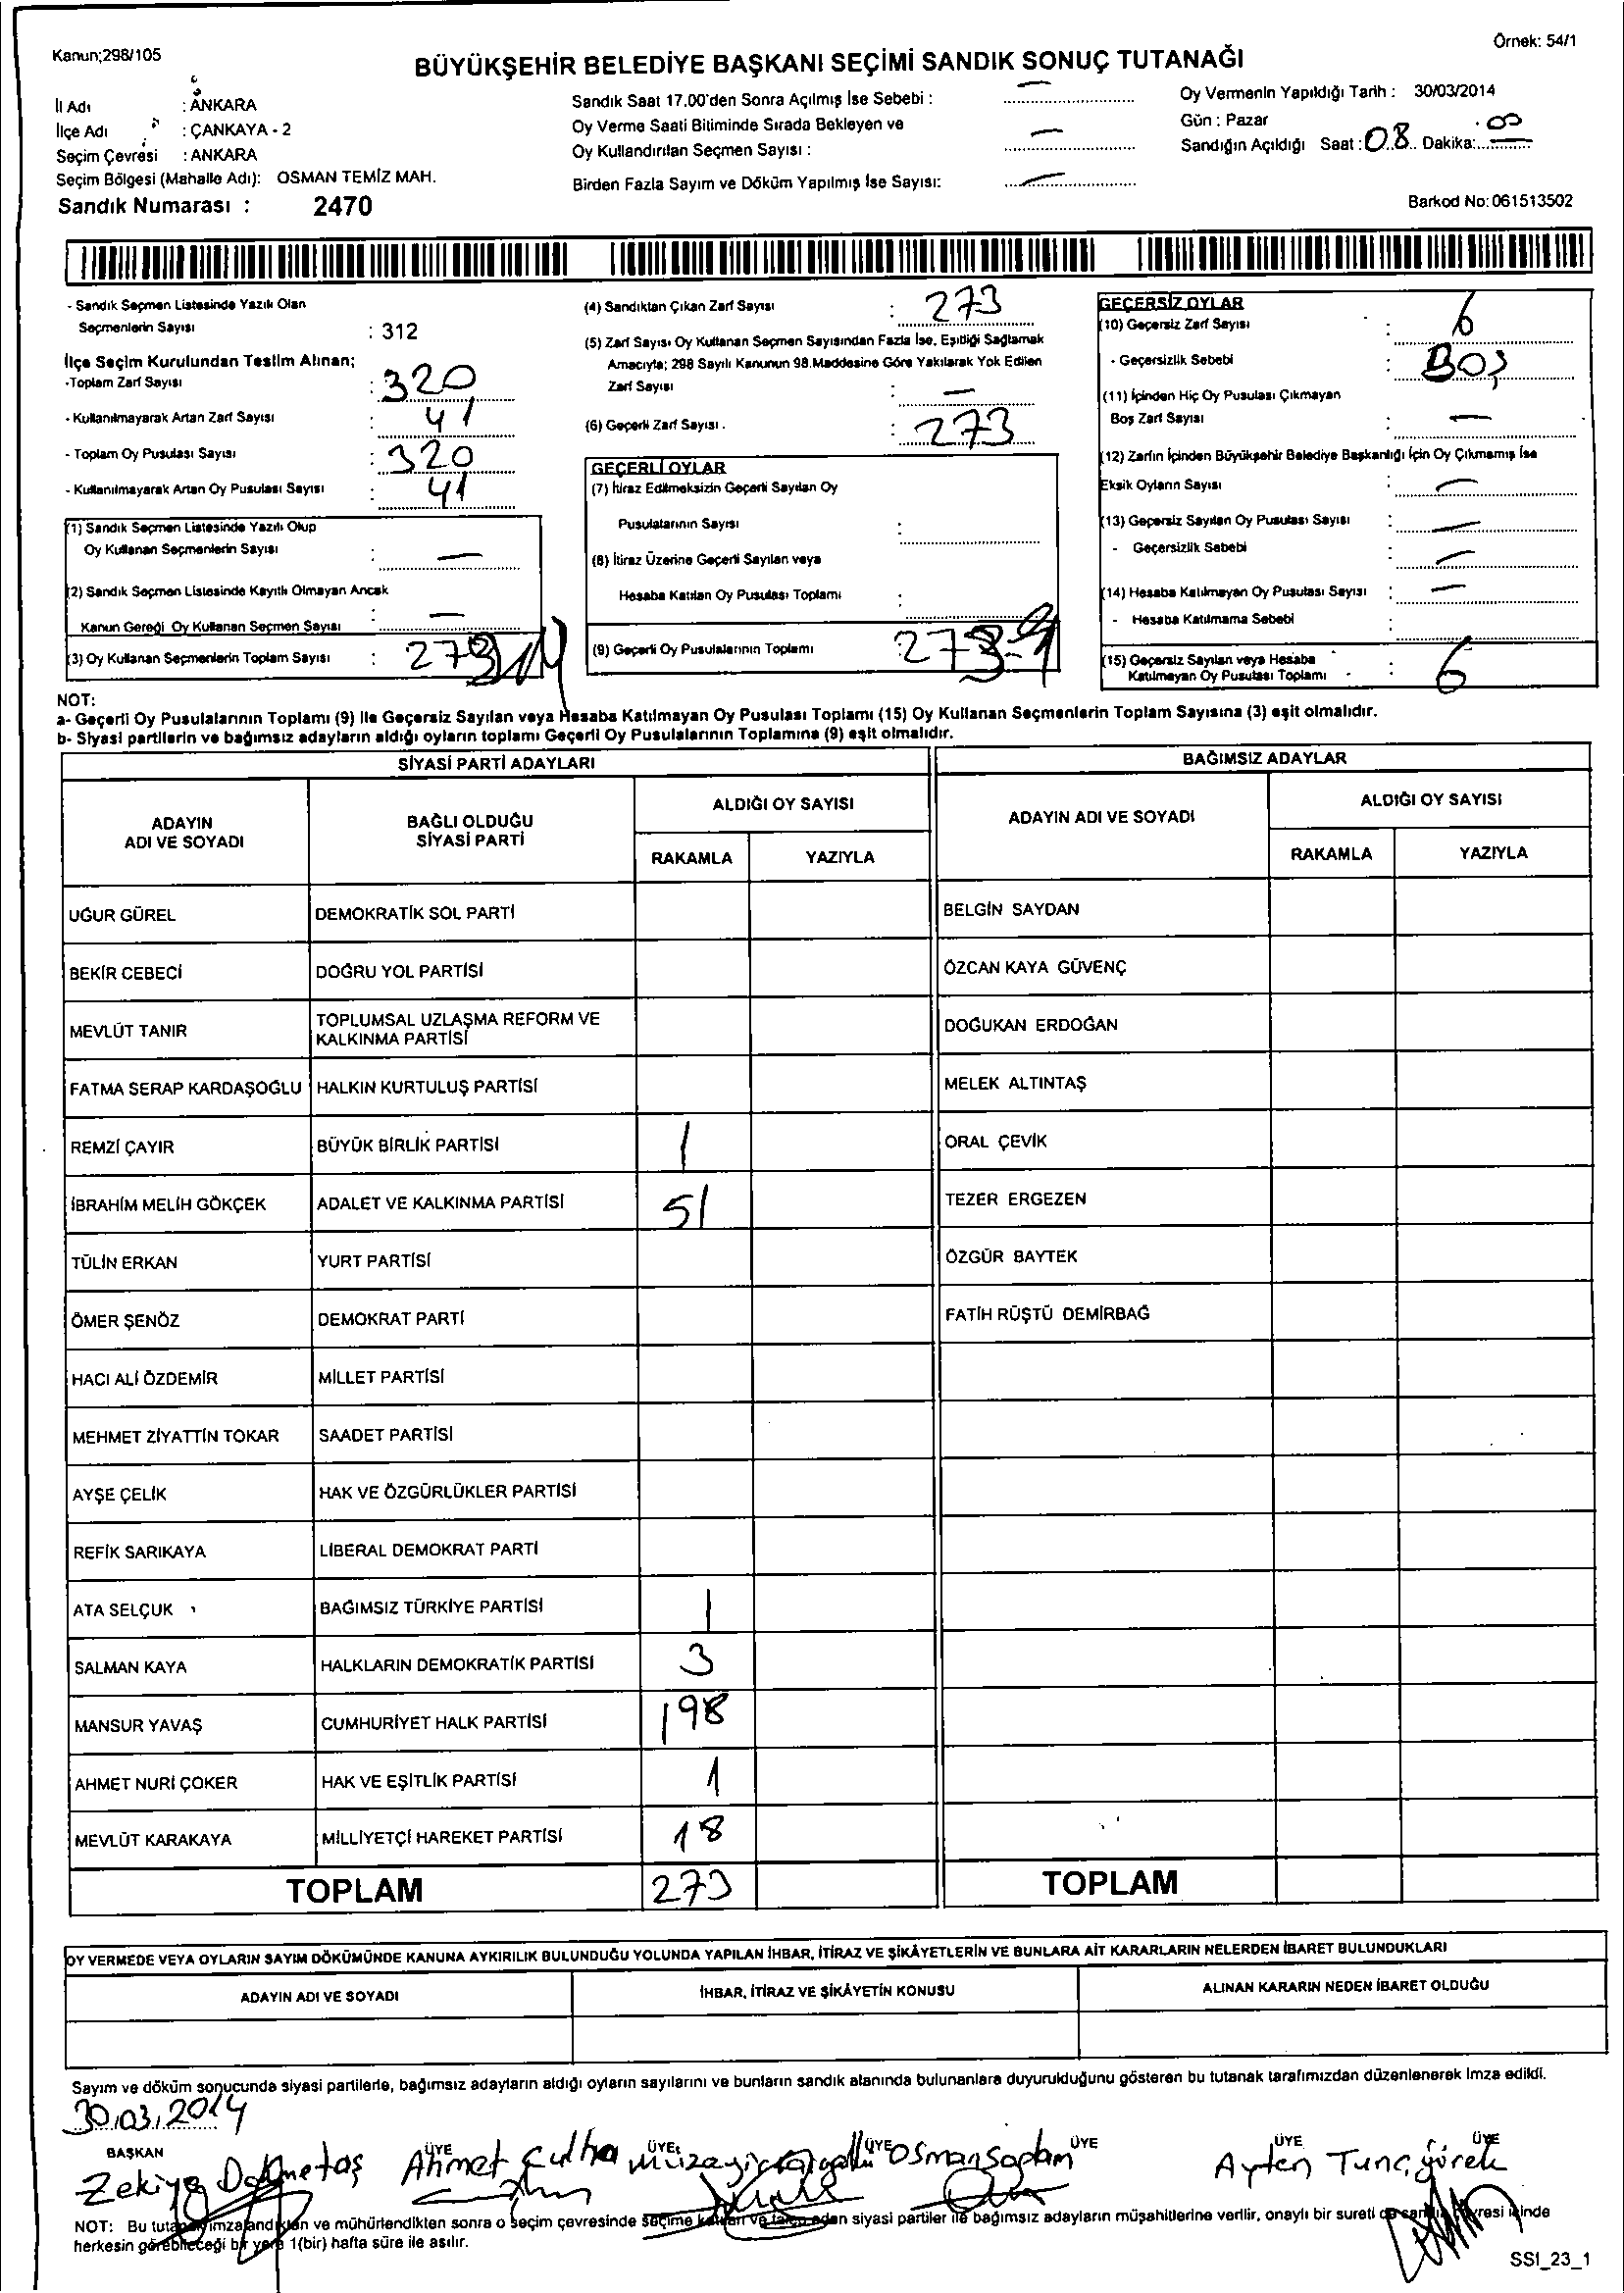 Kanun;298/105
Örnek: 54/1
BÜYÜKŞEHİR BELEDİYE BAŞKANI SEÇİMİ SANDIK SONUÇ TUTANAĞI
İl Adı : ANKARA
İlçe Adı : ÇANKAYA - 2
Seçim Çevresi : ANKARA
Seçim Bölgesi (Mahalle Adı): OSMAN TEMİZ MAH.
Sandık Numarası : 2470
Sandık Saat 17.00'den Sonra Açılmış İse Sebebi : —
Oy Verme Saati Bitiminde Sırada Bekleyen ve
Oy Kullandırılan Seçmen Sayısı : —
Birden Fazla Sayım ve Döküm Yapılmış İse Sayısı: —
Oy Vermenin Yapıldığı Tarih : 30/03/2014
Gün : Pazar
Sandığın Açıldığı Saat : 08 Dakika: 00
Barkod No: 061513502
- Sandık Seçmen Listesinde Yazılı Olan
Seçmenlerin Sayısı : 312
İlçe Seçim Kurulundan Teslim Alınan;
-Toplam Zarf Sayısı : 320
- Kullanılmayarak Artan Zarf Sayısı : 41
- Toplam Oy Pusulası Sayısı : 320
- Kullanılmayarak Artan Oy Pusulası Sayısı : 41
(1) Sandık Seçmen Listesinde Yazılı Olup
Oy Kullanan Seçmenlerin Sayısı : —
(2) Sandık Seçmen Listesinde Kayıtlı Olmayan Ancak
Kanun Gereği Oy Kullanan Seçmen Sayısı : —
(3) Oy Kullanan Seçmenlerin Toplam Sayısı :
(4) Sandıktan Çıkan Zarf Sayısı : 273
(5) Zarf Sayısı Oy Kullanan Seçmen Sayısından Fazla İse, Eşitliği Sağlamak
Amacıyla; 298 Sayılı Kanunun 98.Maddesine Göre Yakılarak Yok Edilen
Zarf Sayısı : —
(6) Geçerli Zarf Sayısı . : 273
GEÇERLİ OYLAR
(7) İtiraz Edilmeksizin Geçerli Sayılan Oy
Pusulalarının Sayısı :
(8) İtiraz Üzerine Geçerli Sayılan veya
Hesaba Katılan Oy Pusulası Toplamı :
(9) Geçerli Oy Pusulalarının Toplamı : 273
GEÇERSİZ OYLAR
(10) Geçersiz Zarf Sayısı : 6
- Geçersizlik Sebebi : BOŞ
(11) İçinden Hiç Oy Pusulası Çıkmayan
Boş Zarf Sayısı : —
(12) Zarfın İçinden Büyükşehir Belediye Başkanlığı İçin Oy Çıkmamış İse
Eksik Oyların Sayısı : —
(13) Geçersiz Sayılan Oy Pusulası Sayısı : —
- Geçersizlik Sebebi : —
(14) Hesaba Katılmayan Oy Pusulası Sayısı : —
- Hesaba Katılmama Sebebi :
(15) Geçersiz Sayılan veya Hesaba
Katılmayan Oy Pusulası Toplamı : 6
NOT:
a- Geçerli Oy Pusulalarının Toplamı (9) ile Geçersiz Sayılan veya Hesaba Katılmayan Oy Pusulası Toplamı (15) Oy Kullanan Seçmenlerin Toplam Sayısına (3) eşit olmalıdır.
b- Siyasi partilerin ve bağımsız adayların aldığı oyların toplamı Geçerli Oy Pusulalarının Toplamına (9) eşit olmalıdır.
SİYASİ PARTİ ADAYLARI
BAĞIMSIZ ADAYLAR
ADAYIN ADI VE SOYADI
BAĞLI OLDUĞU SİYASİ PARTİ
ALDIĞI OY SAYISI
RAKAMLA YAZIYLA
ADAYIN ADI VE SOYADI
ALDIĞI OY SAYISI
RAKAMLA YAZIYLA
UĞUR GÜREL DEMOKRATİK SOL PARTİ BELGİN SAYDAN
BEKİR CEBECİ DOĞRU YOL PARTİSİ ÖZCAN KAYA GÜVENÇ
MEVLÜT TANIR TOPLUMSAL UZLAŞMA REFORM VE KALKINMA PARTİSİ DOĞUKAN ERDOĞAN
FATMA SERAP KARDAŞOĞLU HALKIN KURTULUŞ PARTİSİ MELEK ALTINTAŞ
REMZİ ÇAYIR BÜYÜK BİRLİK PARTİSİ 1 ORAL ÇEVİK
İBRAHİM MELİH GÖKÇEK ADALET VE KALKINMA PARTİSİ 51 TEZER ERGEZEN
TÜLİN ERKAN YURT PARTİSİ ÖZGÜR BAYTEK
ÖMER ŞENÖZ DEMOKRAT PARTİ FATİH RÜŞTÜ DEMİRBAĞ
HACI ALİ ÖZDEMİR MİLLET PARTİSİ
MEHMET ZİYATTİN TOKAR SAADET PARTİSİ
AYŞE ÇELİK HAK VE ÖZGÜRLÜKLER PARTİSİ
REFİK SARIKAYA LİBERAL DEMOKRAT PARTİ
ATA SELÇUK BAĞIMSIZ TÜRKİYE PARTİSİ 1
SALMAN KAYA HALKLARIN DEMOKRATİK PARTİSİ 3
MANSUR YAVAŞ CUMHURİYET HALK PARTİSİ 198
AHMET NURİ ÇOKER HAK VE EŞİTLİK PARTİSİ 1
MEVLÜT KARAKAYA MİLLİYETÇİ HAREKET PARTİSİ 18
TOPLAM 273 TOPLAM
OY VERMEDE VEYA OYLARIN SAYIM DÖKÜMÜNDE KANUNA AYKIRILIK BULUNDUĞU YOLUNDA YAPILAN İHBAR, İTİRAZ VE ŞİKÂYETLERİN VE BUNLARA AİT KARARLARIN NELERDEN İBARET BULUNDUKLARI
ADAYIN ADI VE SOYADI İHBAR, İTİRAZ VE ŞİKÂYETİN KONUSU ALINAN KARARIN NEDEN İBARET OLDUĞU
Sayım ve döküm sonucunda siyasi partilerle, bağımsız adayların aldığı oyların sayılarını ve bunların sandık alanında bulunanlara duyurulduğunu gösteren bu tutanak tarafımızdan düzenlenerek imza edildi.
30.03.2014
BAŞKAN ÜYE ÜYE ÜYE ÜYE ÜYE ÜYE
Zekiye Ahmet Osman Ayten
NOT: Bu tutanak imzalandıktan ve mühürlendikten sonra o seçim çevresinde seçime katılan ve talep eden siyasi partiler ile bağımsız adayların müşahitlerine verilir, onaylı bir sureti de sandık çevresi içinde
herkesin görebileceği bir yere 1(bir) hafta süre ile asılır.
SSI_23_1